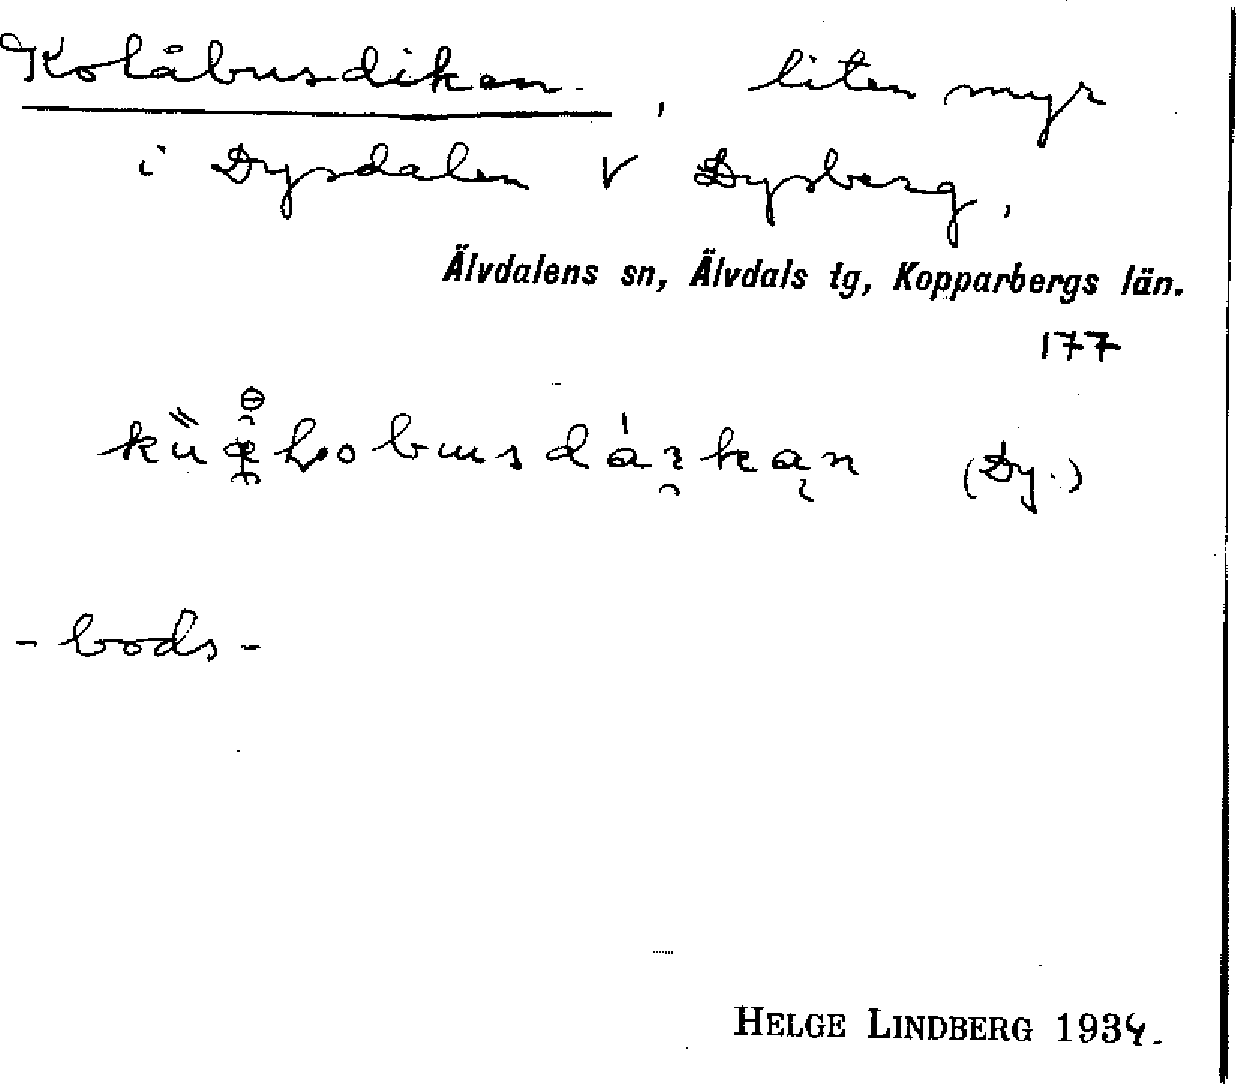 Kolåbusdiken, liten myr
i Dysdalen V Dysberg,
Älvdalens sn, Älvdals tg, Kopparbergs län.
177
(Dy.)
-bods-
HELGE LINDBERG 1934.